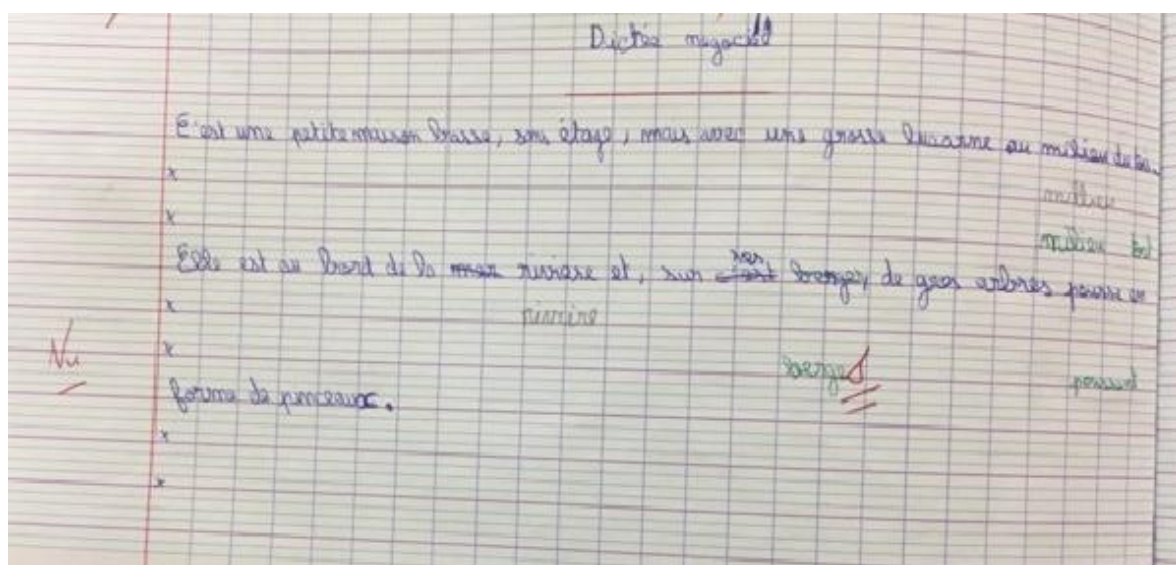 Dictée négociée
C'est une petite maison basse, sans étage, mais avec une grosse lucarne au milieu
millieu
milieu
Elle est au bord de la mer rivière et, sur ses berges, de gros arbres pousse en
rivière
Vu
berges
poussent
forme de pinceaux.